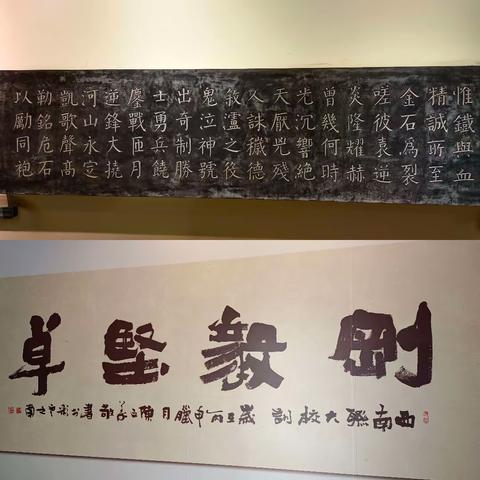 惟鐵與血
精誠所至
金石為裂
嗟彼袁逆
炎隆耀赫
曾幾何時
光沉響絕
天厭兇殘
人誅穢德
敘瀘之役
鬼泣神號
出奇制勝
士勇兵饒
鏖戰匝月
逆鋒大撓
河山永定
凱歌聲高
勒銘危石
以勵同袍
剛毅堅卓
西南聯大校訓 歲在丙申臘月陳敬書於彩雲之南